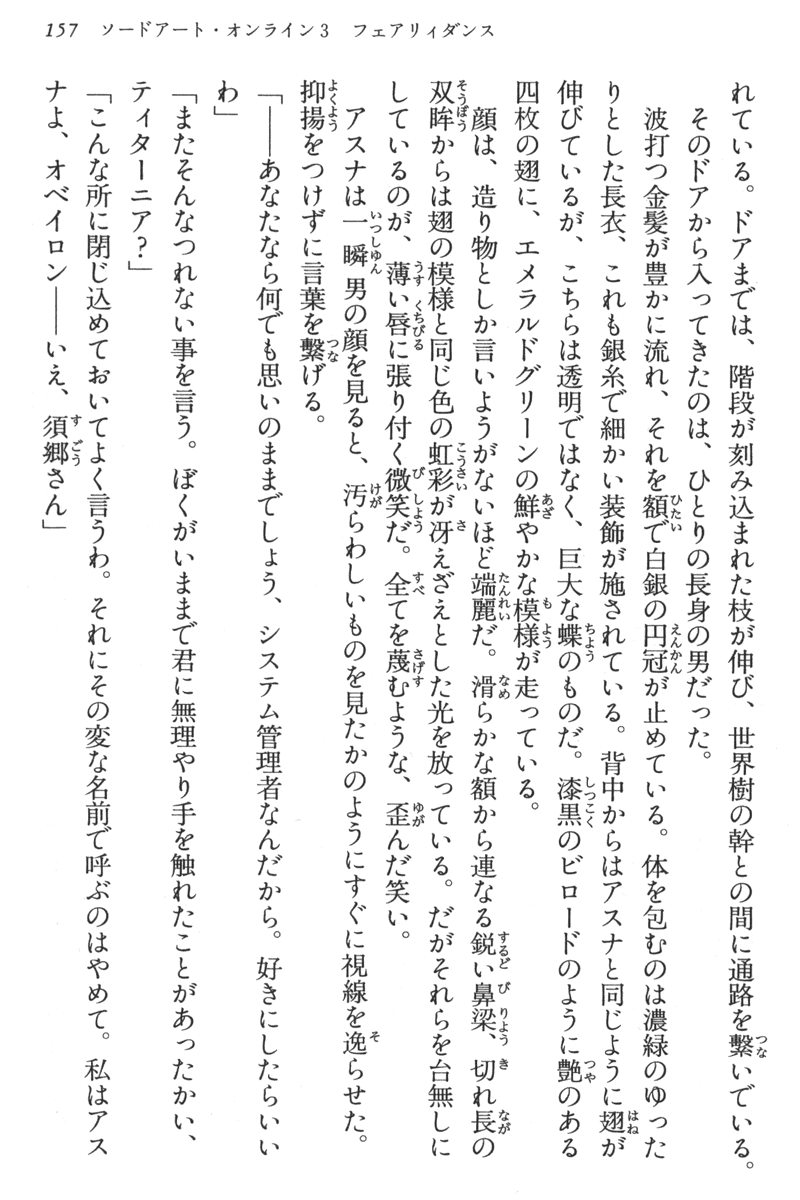 157 ソードアート・オンライン3 フェアリィダンス
れている。ドアまでは、階段が刻み込まれた枝が伸び、世界樹の幹との間に通路を繋いでいる。
そのドアから入ってきたのは、ひとりの長身の男だった。
波打つ金髪が豊かに流れ、それを額で白銀の円冠が止めている。体を包むのは濃緑のゆった
りとした長衣、これも銀糸で細かい装飾が施されている。背中からはアスナと同じように翅が
伸びているが、こちらは透明ではなく、巨大な蝶のものだ。漆黒のビロードのように艶のある
四枚の翅に、エメラルドグリーンの鮮やかな模様が走っている。
顔は、造り物としか言いようがないほど端麗だ。滑らかな額から連なる鋭い鼻梁、切れ長の
双眸からは翅の模様と同じ色の虹彩が冴えざえとした光を放っている。だがそれらを台無しに
しているのが、薄い唇に張り付く微笑だ。全てを蔑むような、歪んだ笑い。
アスナは一瞬男の顔を見ると、汚らわしいものを見たかのようにすぐに視線を逸らせた。
抑揚をつけずに言葉を繋げる。
「――あなたなら何でも思いのままでしょう、システム管理者なんだから。好きにしたらいい
わ」
「またそんなつれない事を言う。ぼくがいままで君に無理やり手を触れたことがあったかい、
ティターニア?」
「こんな所に閉じ込めておいてよく言うわ。それにその変な名前で呼ぶのはやめて。私はアス
ナよ、オベイロン――いえ、須郷さん」